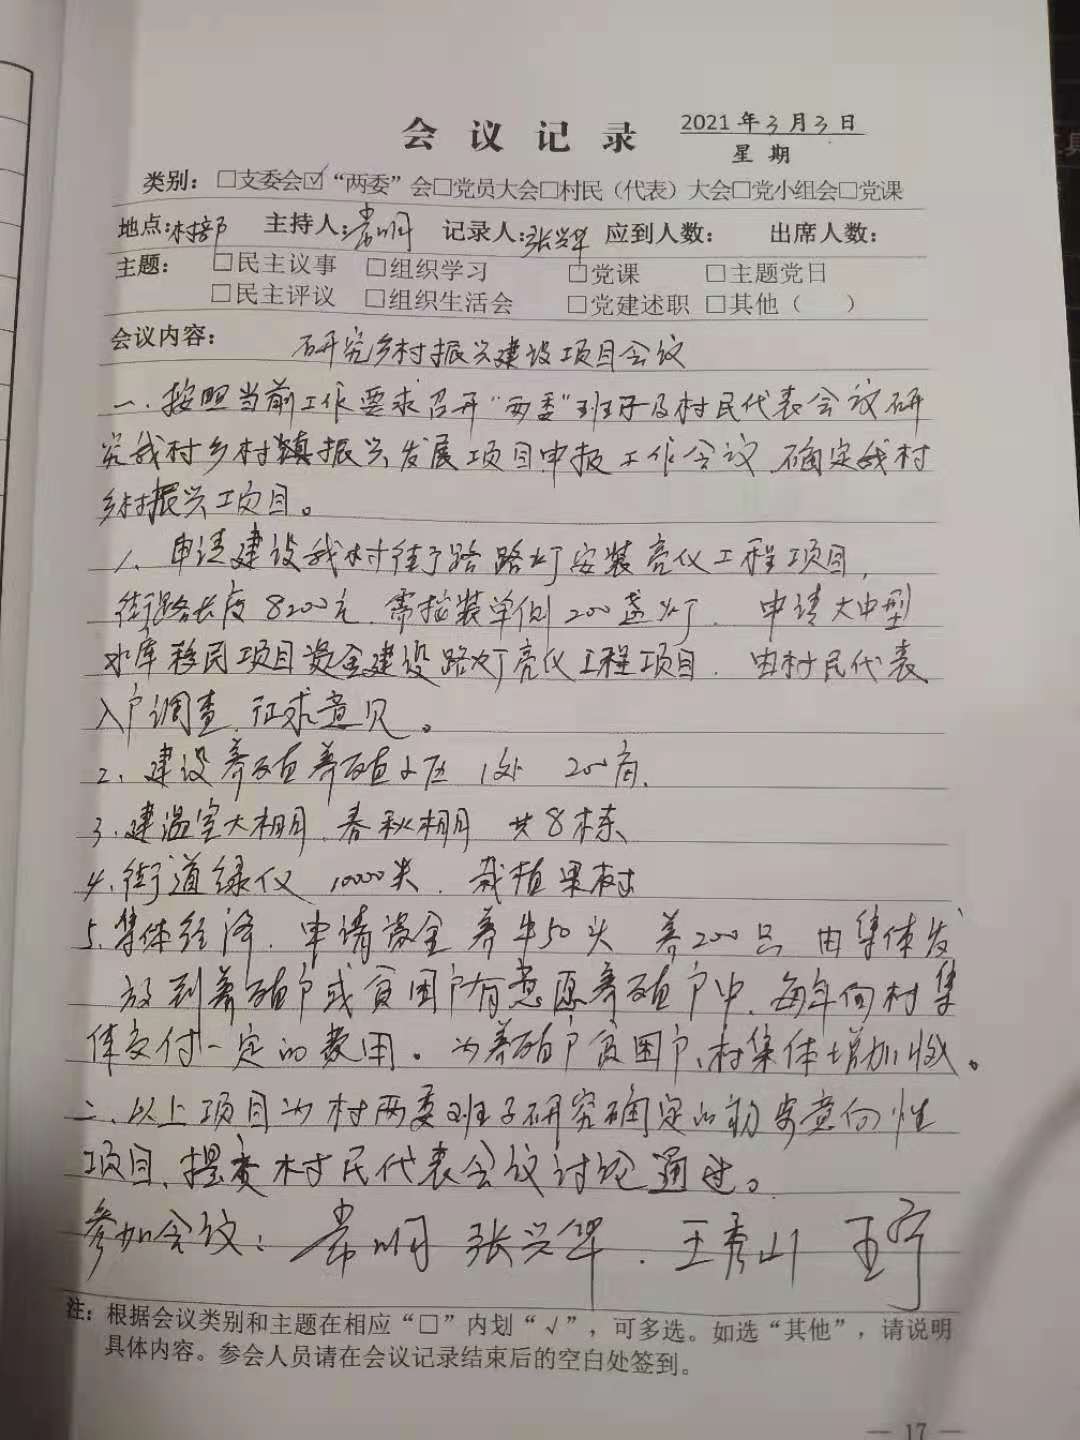 会议记录 2021年3月3日
星期
类别：□支委会☑“两委”会□党员大会□村民（代表）大会□党小组会□党课
地点：村部 主持人：常明 记录人：张兴华 应到人数： 出席人数：
主题： □民主议事 □组织学习 □党课 □主题党日
□民主评议 □组织生活会 □党建述职 □其他（ ）
会议内容： 研究乡村振兴建设项目会议
一、按照当前工作要求召开“两委”班子及村民代表会议研
究我村乡村振兴发展项目申报工作会议，确定我村
乡村振兴项目。
1、申请建设我村街路路灯安装亮化工程项目，
街路长度8200，需按装单侧200盏灯，申请大中型
水库移民项目资金建设路灯亮化工程项目，由村民代表
入户调查，征求意见。
2、建设养殖养殖小区 1处 200
3、建温室大棚，春秋棚 共8栋
4、街道绿化 10000，栽植果树
5、集体经济，申请资金养牛50头 养200只 由集体发
放到养殖户或贫困户有意愿养殖户中，每年向村集
体交付一定的费用。为养殖户贫困户、村集体增加收。
二、以上项目为村两委班子研究确定的初步意向性
项目，提交村民代表会议讨论通过。
参加会议：常明 张兴华、王秀山 王宁
注：根据会议类别和主题在相应“□”内划“√”，可多选。如选“其他”，请说明
具体内容。参会人员请在会议记录结束后的空白处签到。
— 17 —